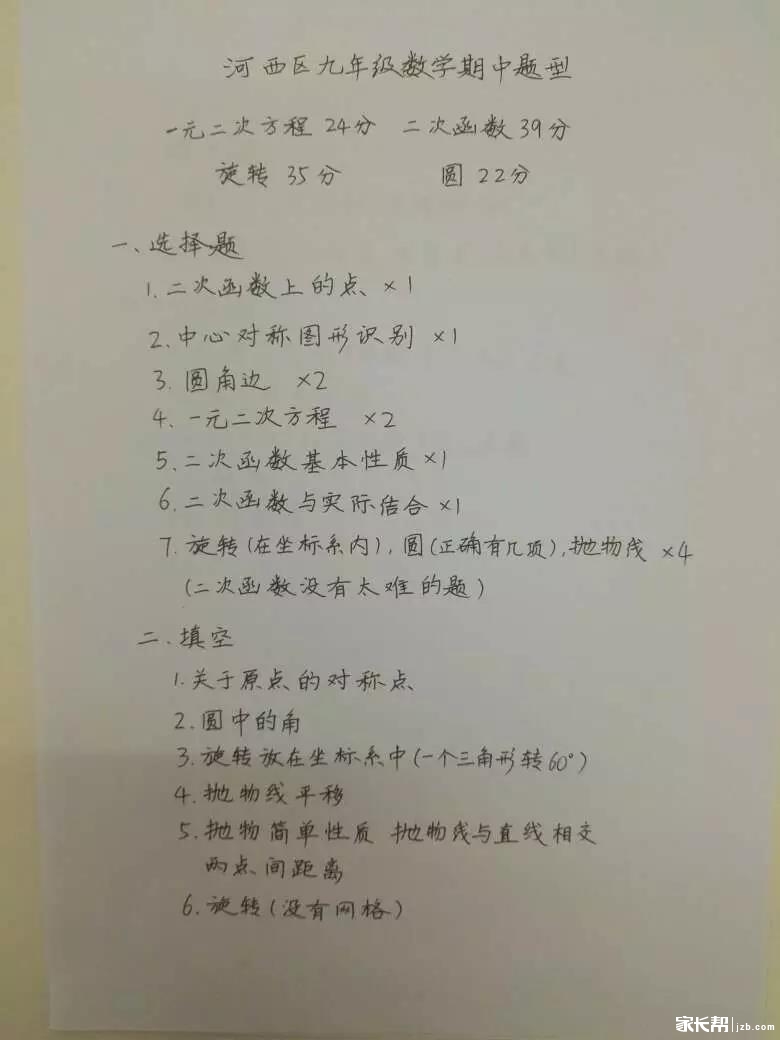 河西区九年级数学期中题型
一元二次方程 24分 二次函数 39分
旋转 35分 圆 22分
一、选择题
1. 二次函数上的点 ×1
2. 中心对称图形识别 ×1
3. 圆角边 ×2
4. 一元二次方程 ×2
5. 二次函数基本性质 ×1
6. 二次函数与实际结合 ×1
7. 旋转(在坐标系内), 圆(正确有几项), 抛物线 ×4
(二次函数没有太难的题)
二、填空
1. 关于原点的对称点
2. 圆中的角
3. 旋转放在坐标系中(一个三角形转60°)
4. 抛物线平移
5. 抛物简单性质 抛物线与直线相交
两点间距离
6. 旋转(没有网格)
家长帮 jzb.com